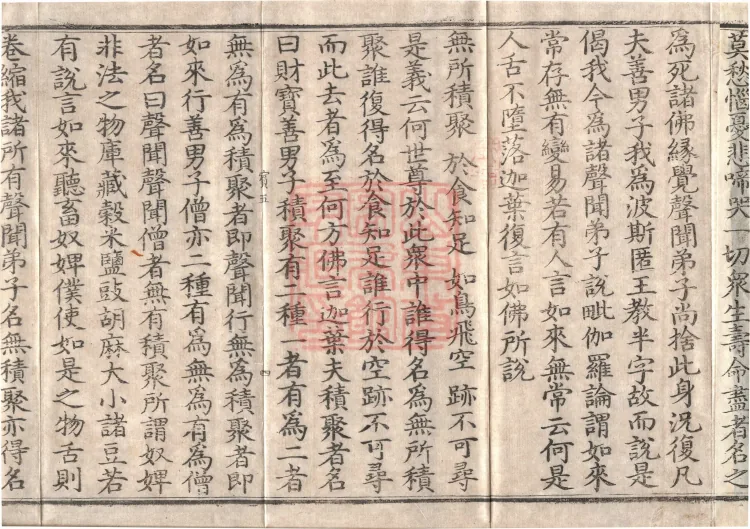 莫愁惱憂悲啼哭一切衆生壽命盡者名之
為死諸佛緣覺聲聞弟子尚捨此身況復凡
夫善男子我為波斯匿王教半字故而說是
偈我今為諸聲聞弟子說毗伽羅論謂如來
常存無有變易若有人言如來無常云何是
人舌不墮落迦葉復言如佛所說
無所積聚 於食知足 如鳥飛空 跡不可尋
是義云何世尊於此衆中誰得名為無所積
聚誰復得名於食知足誰行於空跡不可尋
而此去者為至何方佛言迦葉夫積聚者名
曰財寶善男子積聚有二種一者有為二者
賓五
四
無為有為積聚者即聲聞行無為積聚者即
如來行善男子僧亦二種有為無為有為僧
者名曰聲聞聲聞僧者無有積聚所謂奴婢
非法之物庫藏穀米鹽豉胡麻大小諸豆若
有說言如來聽畜奴婢僕使如是之物舌則
卷縮我諸所有聲聞弟子名無積聚亦得名